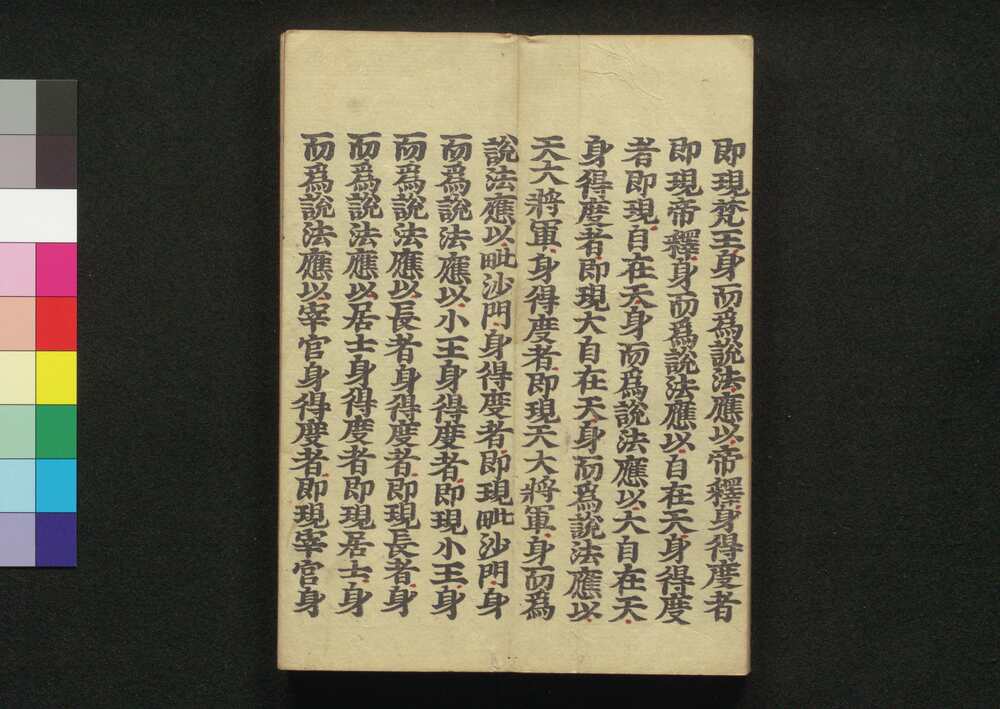 即現梵王身而爲説法應以帝釋身得度者
即現帝釋身而爲説法應以自在天身得度
者即現自在天身而爲説法應以大自在天
身得度者即現大自在天身而爲説法應以
天大將軍身得度者即現天大將軍身而爲
説法應以毗沙門身得度者即現毗沙門身
而爲説法應以小王身得度者即現小王身
而爲説法應以長者身得度者即現長者身
而爲説法應以居士身得度者即現居士身
而爲説法應以宰官身得度者即現宰官身